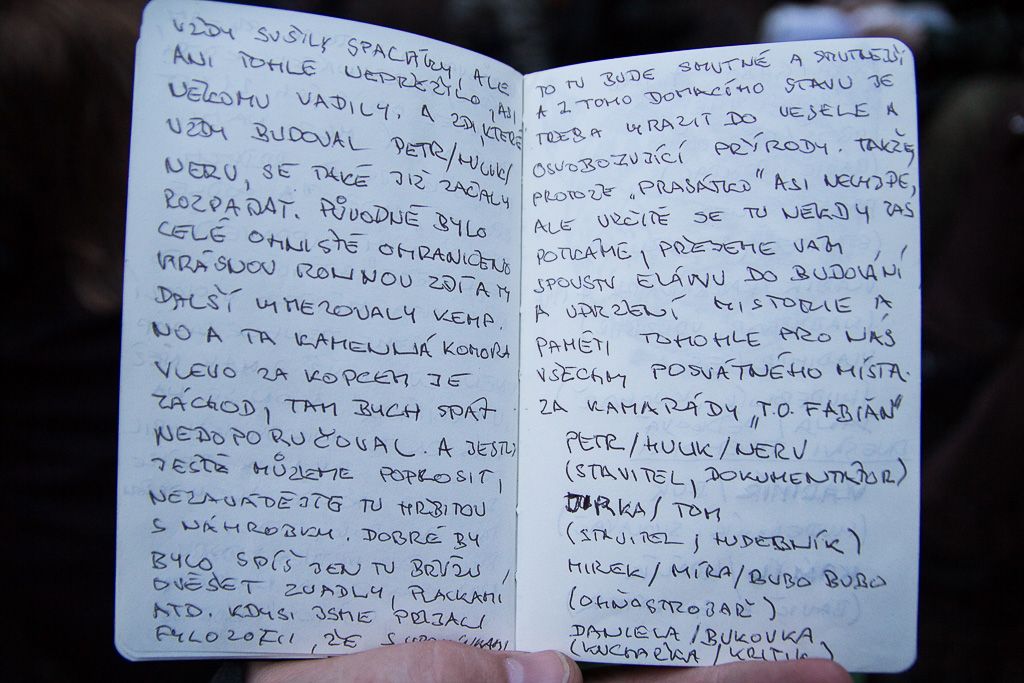 VŽDY SUŠILY SPACÁKY, ALE
ANI TOHLE NEPŘEŽILO, ASI
NĚKOMU VADILY. A ZDI, KTERÉ
VŽDY BUDOVAL PETR/HULIK/
NERV, SE TAKÉ JIŽ ZAČALY
ROZPADAT. PŮVODNĚ BYLO
CELÉ OHNIŠTĚ OHRANIČENO
KRÁSNOU ROVNOU ZDÍ A M
DALŠÍ VYMEZOVALY KEMP.
NO A TA KAMENNÁ KOMORA
VLEVO ZA KOPCEM JE
ZÁCHOD, TAM BYCH SPÁT
NEDOPORUČOVAL. A JESTLI
JEŠTĚ MŮŽEME POPROSIT,
NEZAVÁDĚJTE TU HŘBITOV
S NÁHROBKY. DOBRÉ BY
BYLO SPÍŠ JEN TU BŘÍZU
OVĚŠET ZVADLY, PLACKAMI
ATD. KDYSI JSME PŘIJALI
FYLOZOFII, ŽE S
TO TU BUDE SMUTNÉ A SMUTNĚJŠÍ
A Z TOHO DOMACÍHO STAVU JE
TŘEBA VYRAZIT DO VESELE A
OSVOBOZUJÍCÍ PŘÍRODY. TAKŽE,
PROTOŽE „PRASÁTKO" ASI NECHYTPE,
ALE URČITĚ SE TU NĚKDY ZAS
POTKÁME, PŘEJEME VÁM
SPOUSTU ELÁNU DO BUDOVÁNÍ
A UDRŽENÍ HISTORIE A
PAMĚTI TOHOHLE PRO NÁS
VŠECHNY POSVÁTNÉHO MÍSTA.
ZA KAMARÁDY „T.O. FABIÁN"
PETR/HULIK/NERV
(STAVITEL, DOKUMENTÁTOR)
JIRKA/TOM
(STAVITEL, HUDEBNÍK)
MIREK/MÍRA/BUBO BUBO
(OHŇOSTROBAŘ)
DANIELA/BUKOVKA
(KUCHAŘKA/KRITIK)